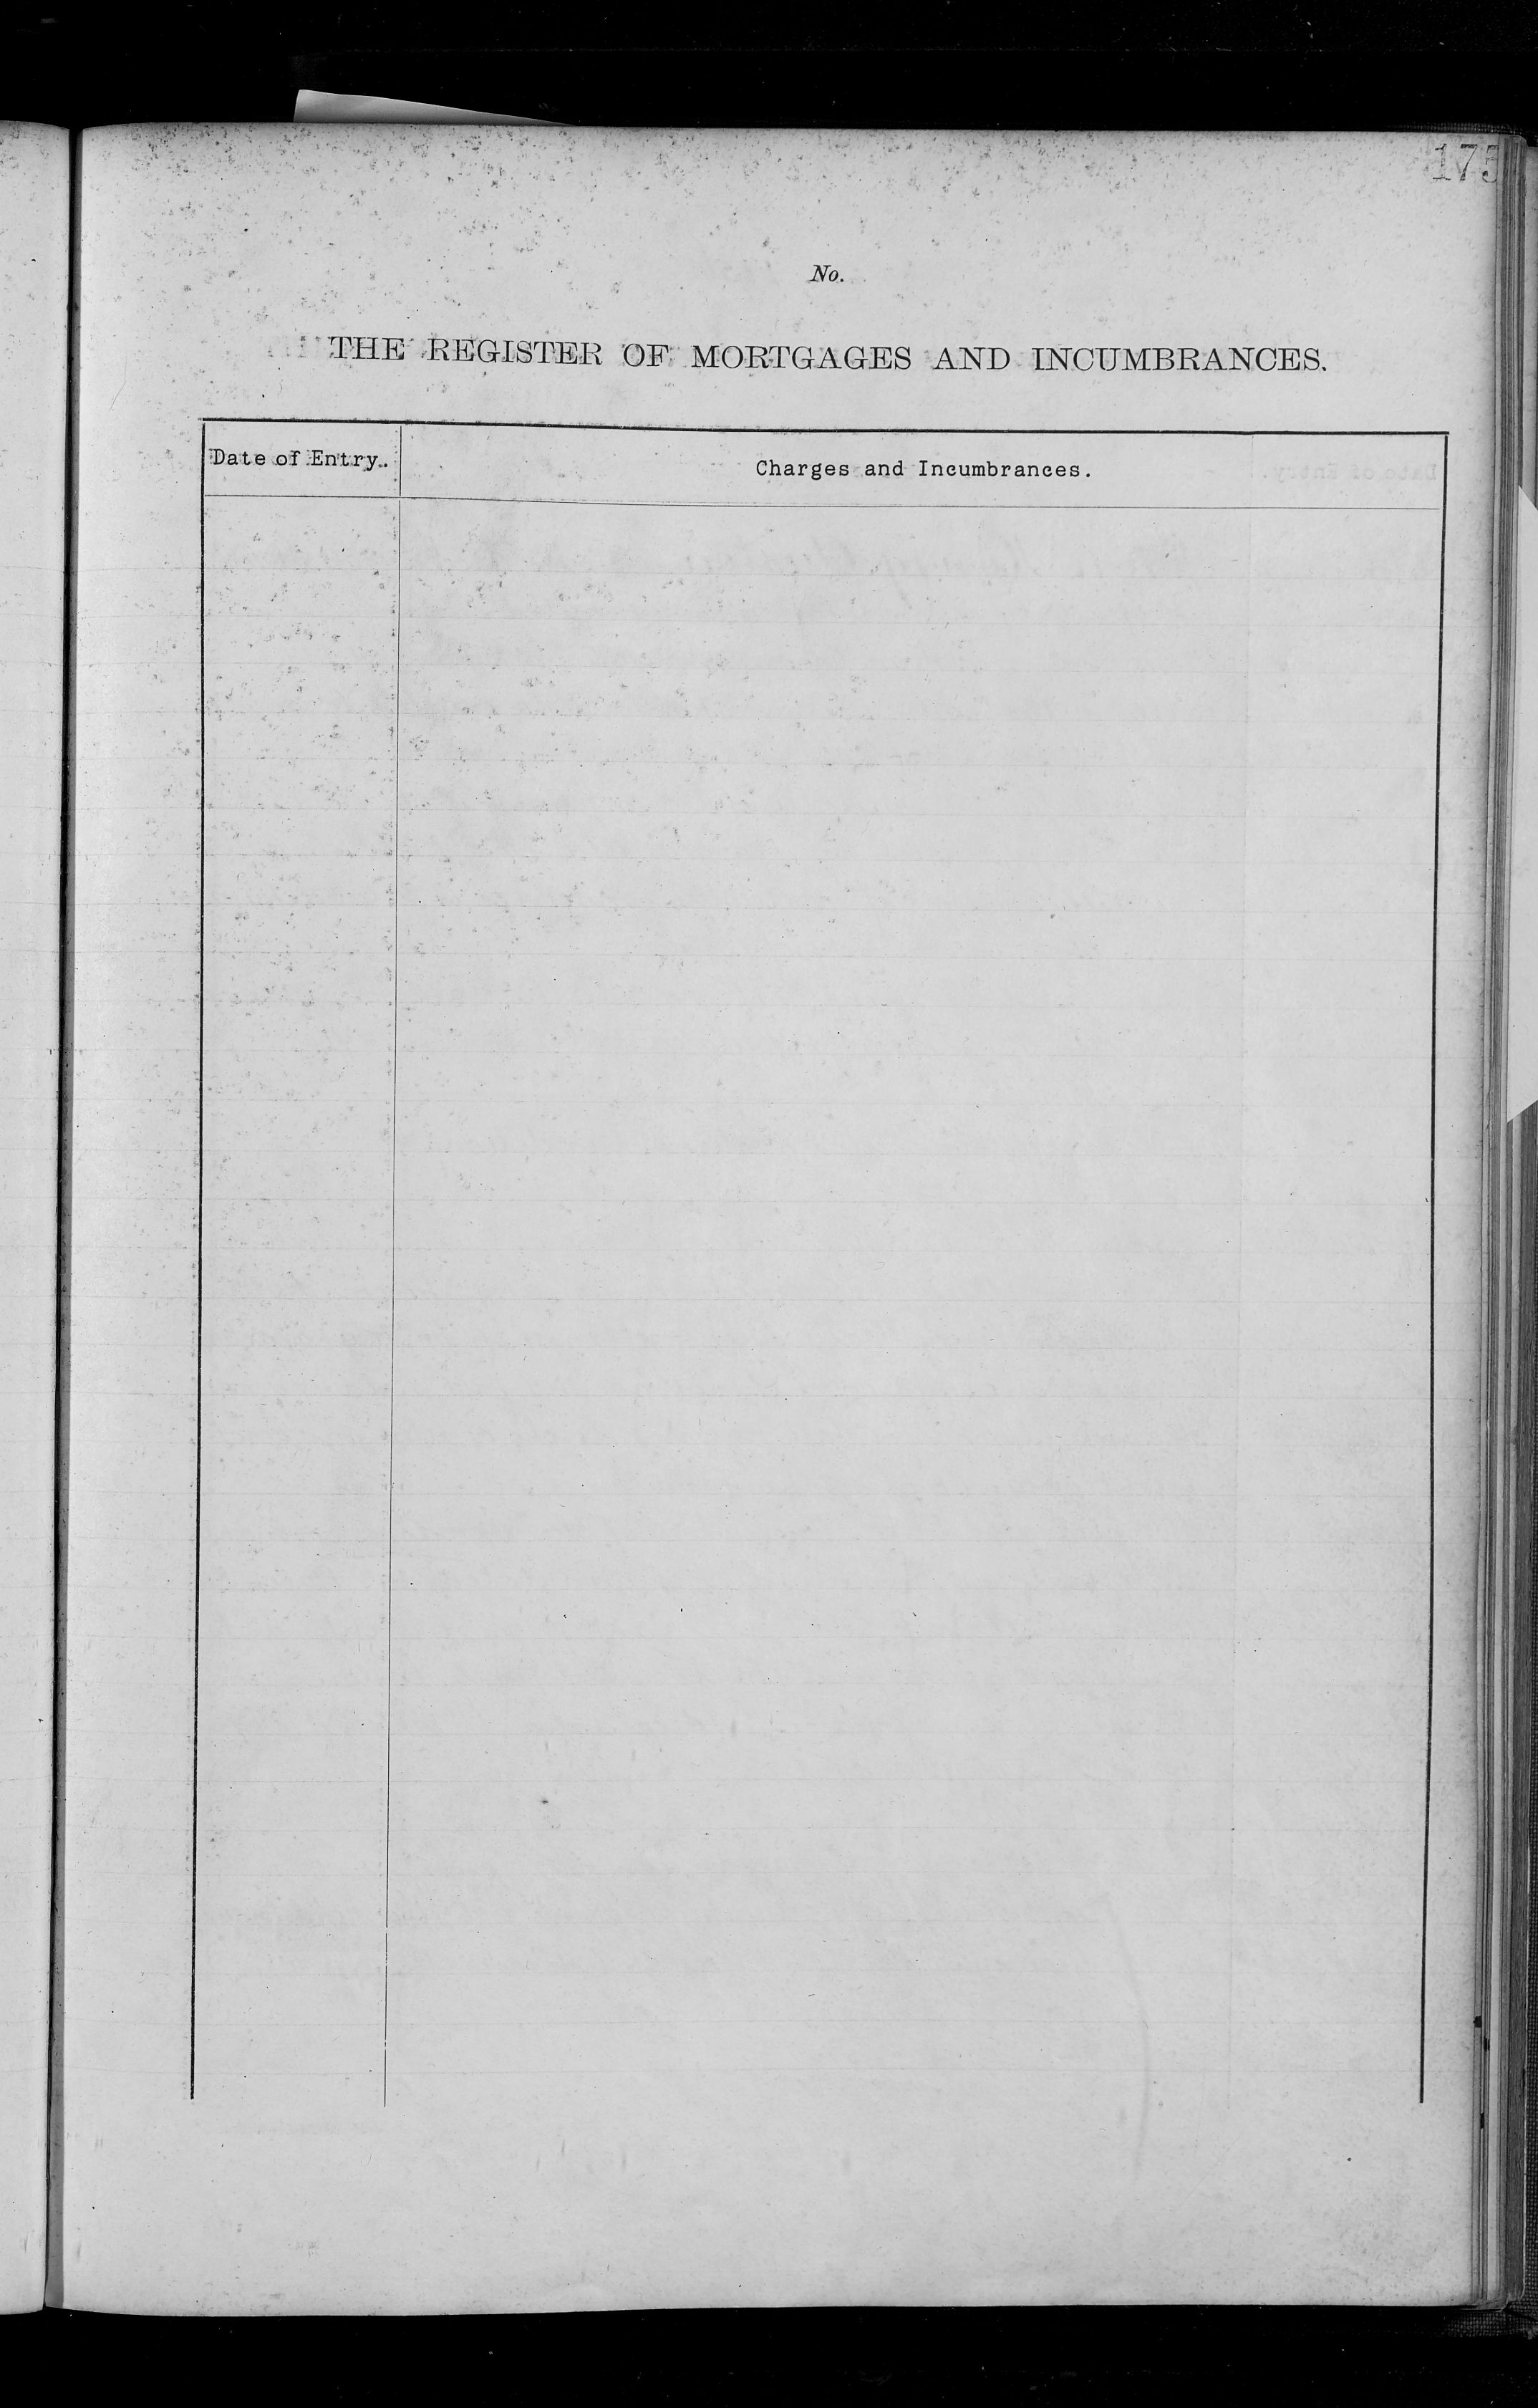 175
No.
THE REGISTER OF MORTGAGES AND INCUMBRANCES.
Date of Entry.
Charges and Incumbrances.